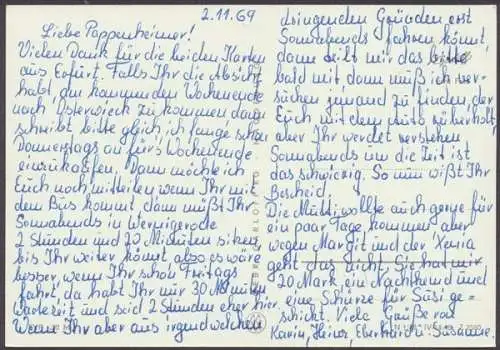 2.11.69
Liebe Pappenheimer!
Vielen Dank für die beiden Karten
aus Erfurt. Falls Ihr die Absicht
habt, am kommenden Wochenende
nach Osterwieck zu kommen dann
schreibt bitte gleich, ich fange schon
Donnerstags an für's Wochenende
einzukaufen. Dann möchte ich
Euch noch mitteilen wenn Ihr mit
den Bus kommt, dann müßt Ihr
Sonnabends in Wernigerode
2 Stunden und 20 Minuten sitzen
bis Ihr weiter könnt also es wäre
besser, wenn Ihr schon Freitags
fahrt, da habt Ihr nur 30 Minuten
Wartezeit und seid 2 Stunden eher hier.
Wenn Ihr aber aus irgendwelchen
dringenden Gründen erst
Sonnabends fahren könnt,
dann teilt mir das bitte
bald mit dann muß ich ver-
suchen jemand zu finden, der
Euch mit dem Auto rüberholt
aber Ihr werdet verstehen
Sonnabends um die Zeit ist
das schwierig. So nun wißt Ihr
Bescheid.
Die Mutti wollte auch gerne für
ein paar Tage kommen aber
wegen Margit und der Xenia
geht das nicht. Sie hat mir
20 Mark, ein Nachthemd und
eine Schürze für Susi ge-
schickt. Viele Grüße von
Karin, Heinz, Eberhard u. Susanne.